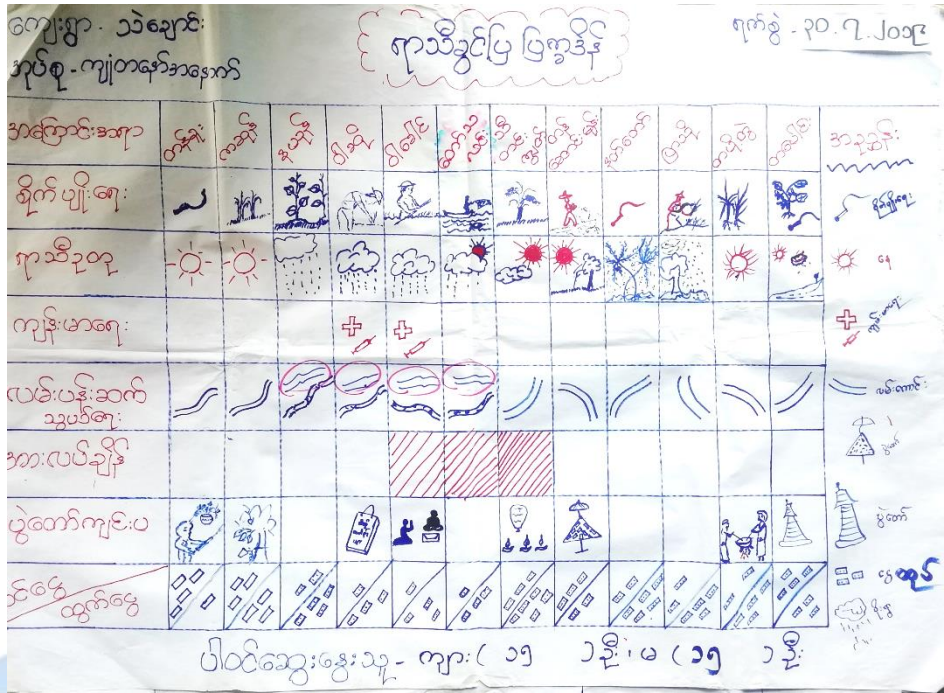 ကျေးရွာ - သဲချောင်း
ရာသီခွင်ပြ ပြက္ခဒိန်
ရက်စွဲ - ၃၀.၇.၂၀၁၉
အုပ်စု - ကျုံတနော်အနောက်
အကြောင်းအရာ တန်ခူး ကဆုန် နယုန် ဝါဆို ဝါခေါင် တော်သလင်း သီတင်းကျွတ် တန်ဆောင်မုန်း နတ်တော် ပြာသို တပို့တွဲ တပေါင်း အညွှန်း
စိုက်ပျိုးရေး စိုက်ပျိုးရေး
ရာသီဥတု နေ
ကျန်းမာရေး ကျန်းမာရေး
လမ်းပန်းဆက်သွယ်ရေး လမ်းကောင်း
အားလပ်ချိန်
ပွဲတော်ကျင်းပ ပွဲတော်
ဝင်ငွေ
ထွက်ငွေ
မိုးရွာ
ပါဝင်ဆွေးနွေးသူ - ကျား ( ၁၅ ) ဦး ၊ မ ( ၁၅ ) ဦး